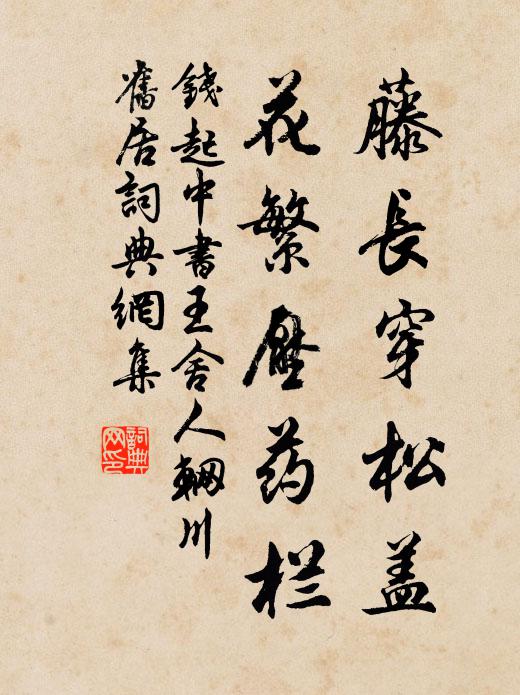 藤長穿松盖
花繁壓药栏
錢起中書王舍人輞川
舊居詞典網集
詞典网印